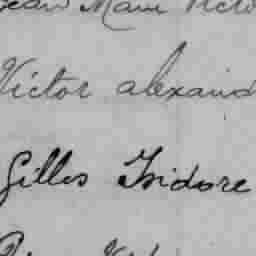 Jean Marie Victo
Victor alexand
Gilles Isidore